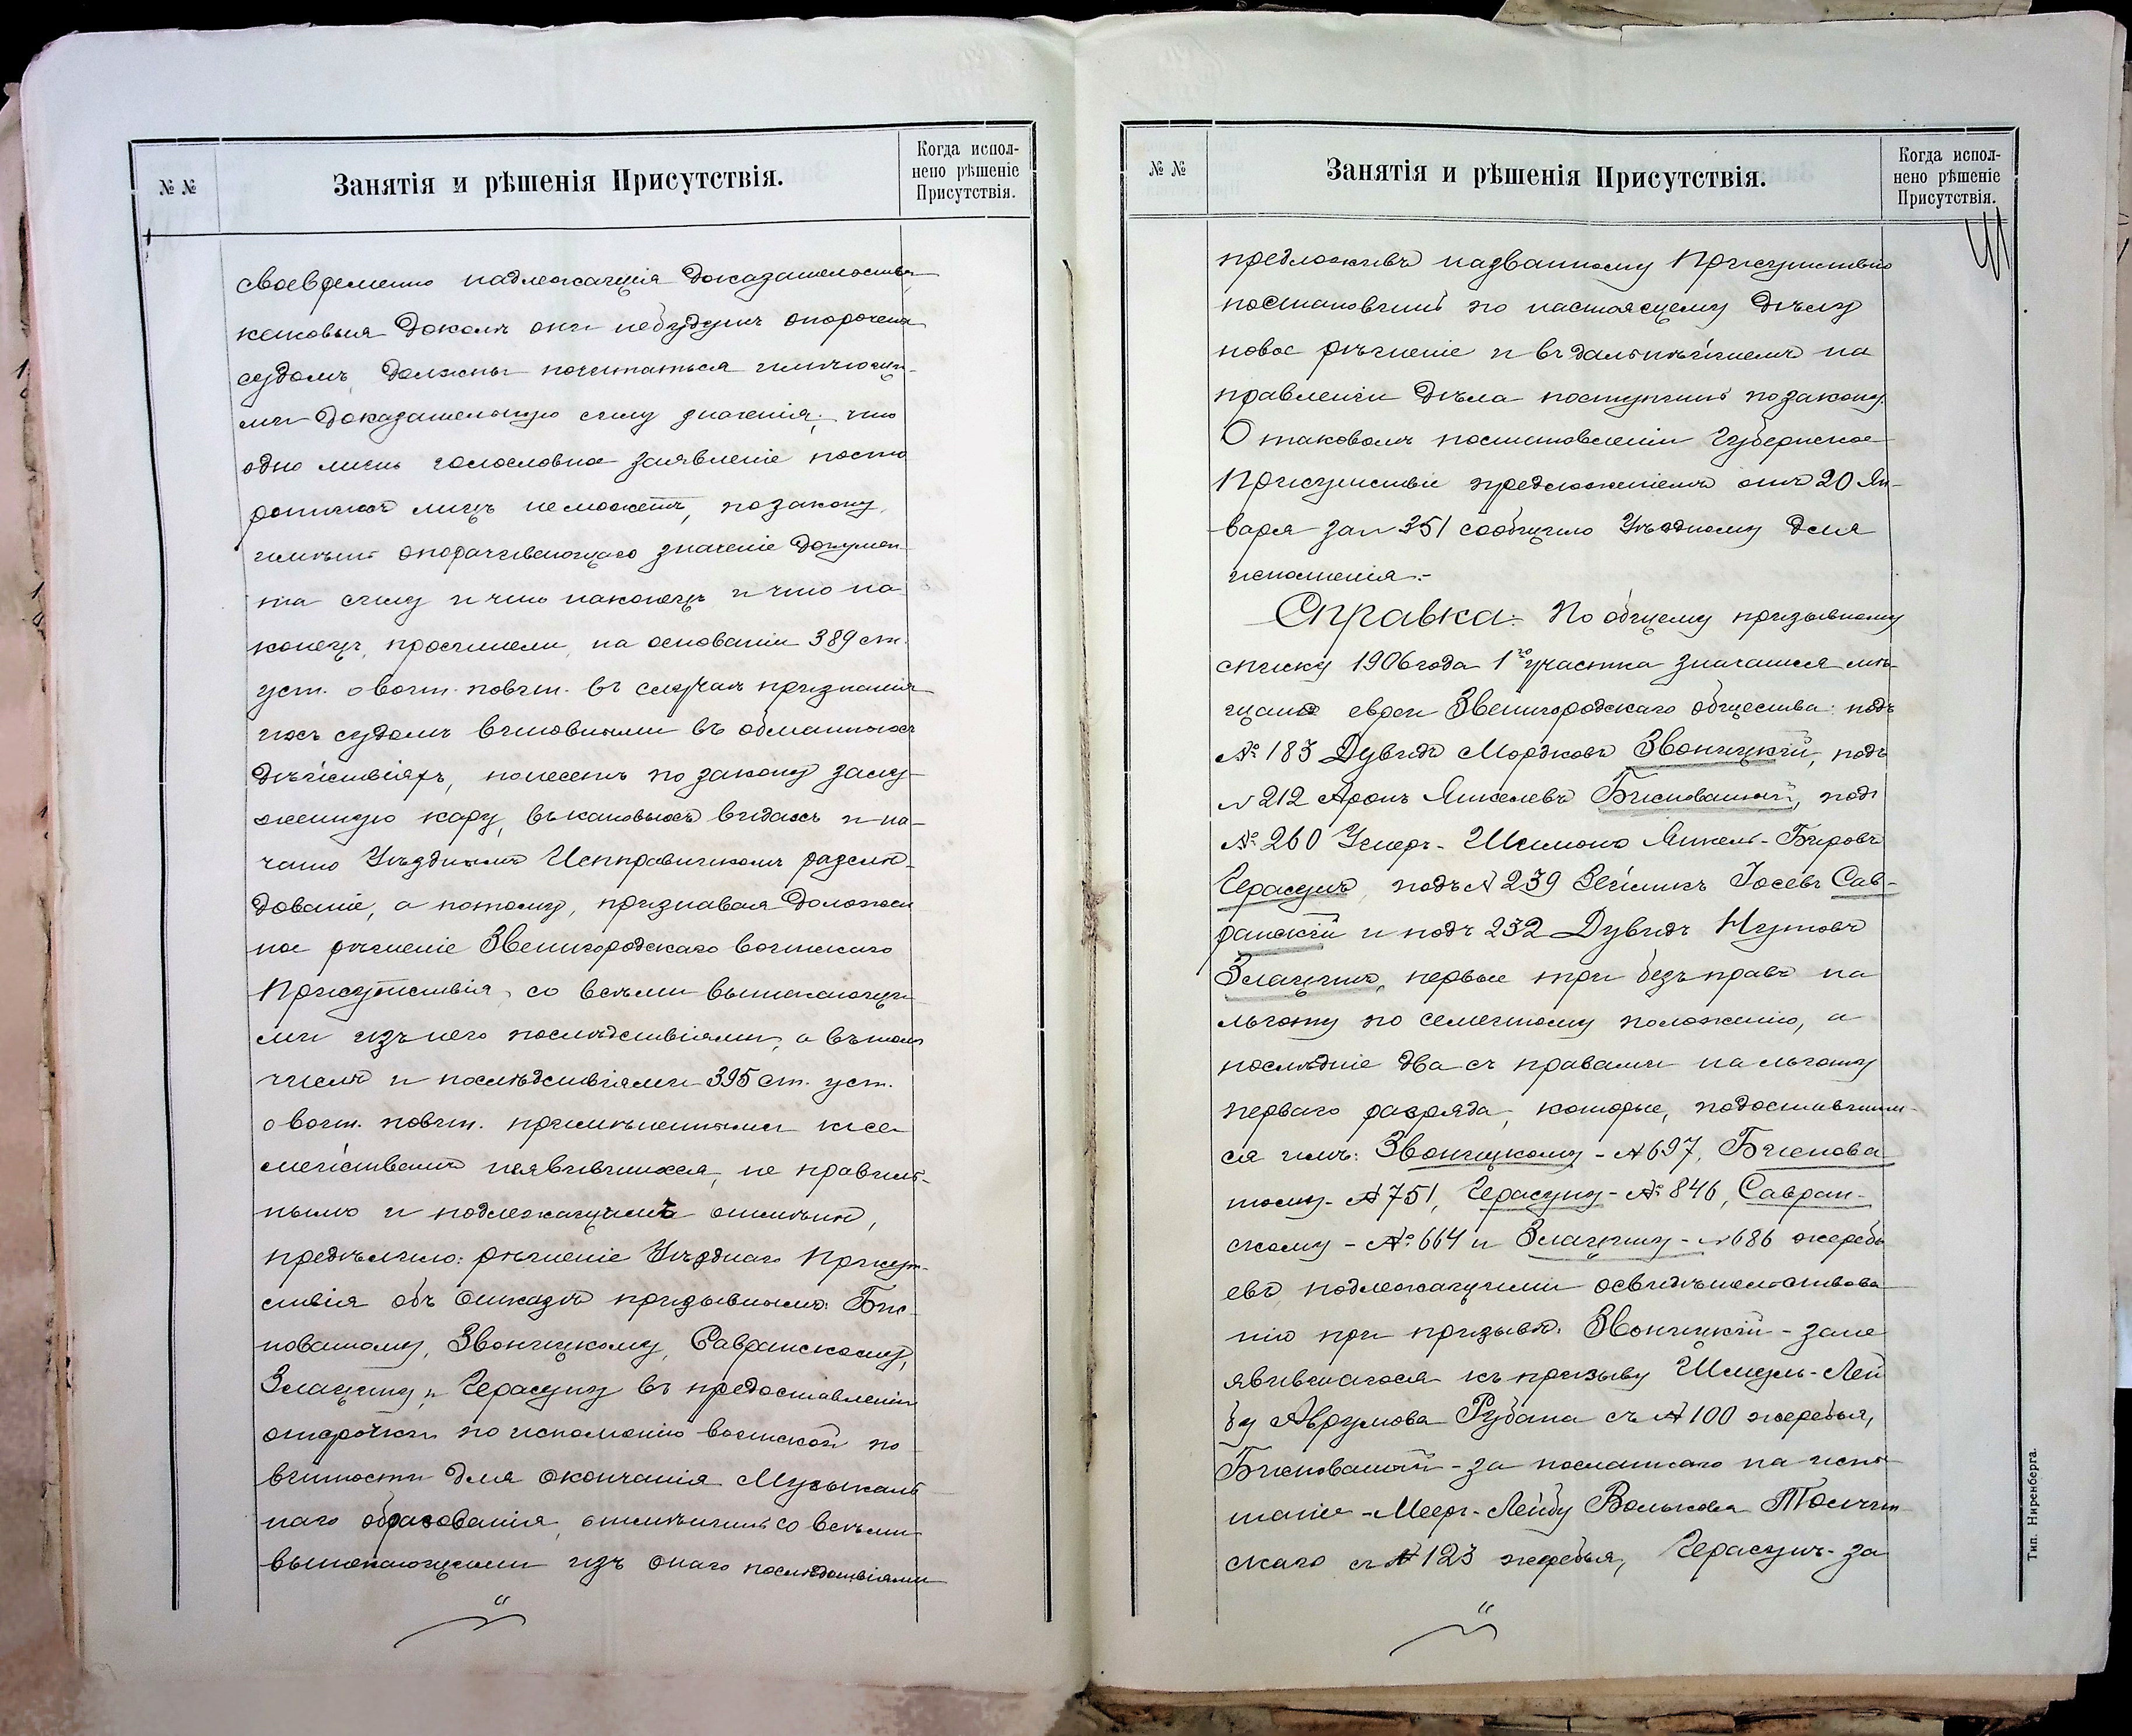 № №
Занятія и рѣшенія Присутствія.
Когда испол-
нено рѣшеніе
Присутствія.
своевременно надлежащія доказательства,
каковыя доколѣ они небудутъ опорочены
судомъ, должны почитаться имѣющи-
ми доказательную силу значенія; что
одно лишь голословное заявленіе посто
роннихъ лицъ неможетъ, позакону,
имѣть опорачивающаго значеніе докумен-
та силу и что наконецъ и что на
конецъ, просители, на основаніи 389 ст.
уст. о воин. повин. въ случаѣ признанія
ихъ судомъ виновными въ обманныхъ
дѣйствіяхъ, понесетъ по закону заслу-
женную кару, въ каковыхъ видахъ и на-
чато Уѣзднымъ Исправникомъ разслѣ-
дованіе, а потому, признавая доложен
ное рѣшеніе Звенигородскаго воинскаго
Присутствія, со всѣми вытекающи
ми изъ него послѣдствіями, а вътомъ
числѣ и послѣдствіями 395 ст. уст.
о воин. повин. примѣненными къ се-
мействамъ неявившихся, не правиль-
нымъ и подлежащимъ отмѣнѣ,
предѣлило: рѣшеніе Уѣзднаго Присут-
ствія объ отказѣ призывнымъ: Бис-
новатому, Звоницкому, Савранскому,
Злацину и Герасуну въ предоставленіи
отсрочки по исполненію воинской по
винности для окончанія Музыкаль
наго образованія, отмѣнить со всѣми
вытекающими изъ онаго послѣдствіями
№ №
Занятія и рѣшенія Присутствія.
Когда испол-
нено рѣшеніе
Присутствія.
предложивъ названному Присутствію
постановить по настоящему дѣлу
новое рѣшеніе и въ дальнѣйшемъ на
правленіи дѣла поступить позакону.
О таковомъ постановленіи Губернское
Присутствіе предложеніемъ отъ 20 Ян-
варя за № 351 сообщило Уѣздному для
исполненія.-
Справка: По общему призывному
списку 1906 года 1го участка значатся мѣ-
щане евреи Звенигородскаго общества: подъ
№ 183 Дувидъ Мордковъ Звоницкій, подъ
№ 212 Аронъ Янкелевъ Бисноватый, подъ
№ 260 Умеръ-Шимонъ Янкель-Беровъ
Герасунъ, подъ № 239 Зейликъ Іосевъ Сав-
ранскій и подъ 232 Дувидъ Нутовъ
Злацинъ, первые три безъ правъ на
льготу по семейному положенію, а
послѣдніе два съ правами на льготу
перваго разряда, которые, подоставшим-
ся имъ: Звоницкому - № 697, Биснова
тому - № 751, Герасуну - № 846, Савран-
скому - № 664 и Злацину - № 686 жеребь
евъ, подлежащими освидѣтельствова
нію при призывѣ. Звоницкій - зане
явившагося къ призыву Шмуль-Лей
бу Аврумова Рубана съ № 100 жеребья,
Бисноватый - за посланнаго на испы
таніе - Меер-Лейбу Волькова Толчин
скаго съ № 123 жеребья, Герасунъ - за
Тип. Ниренберга.